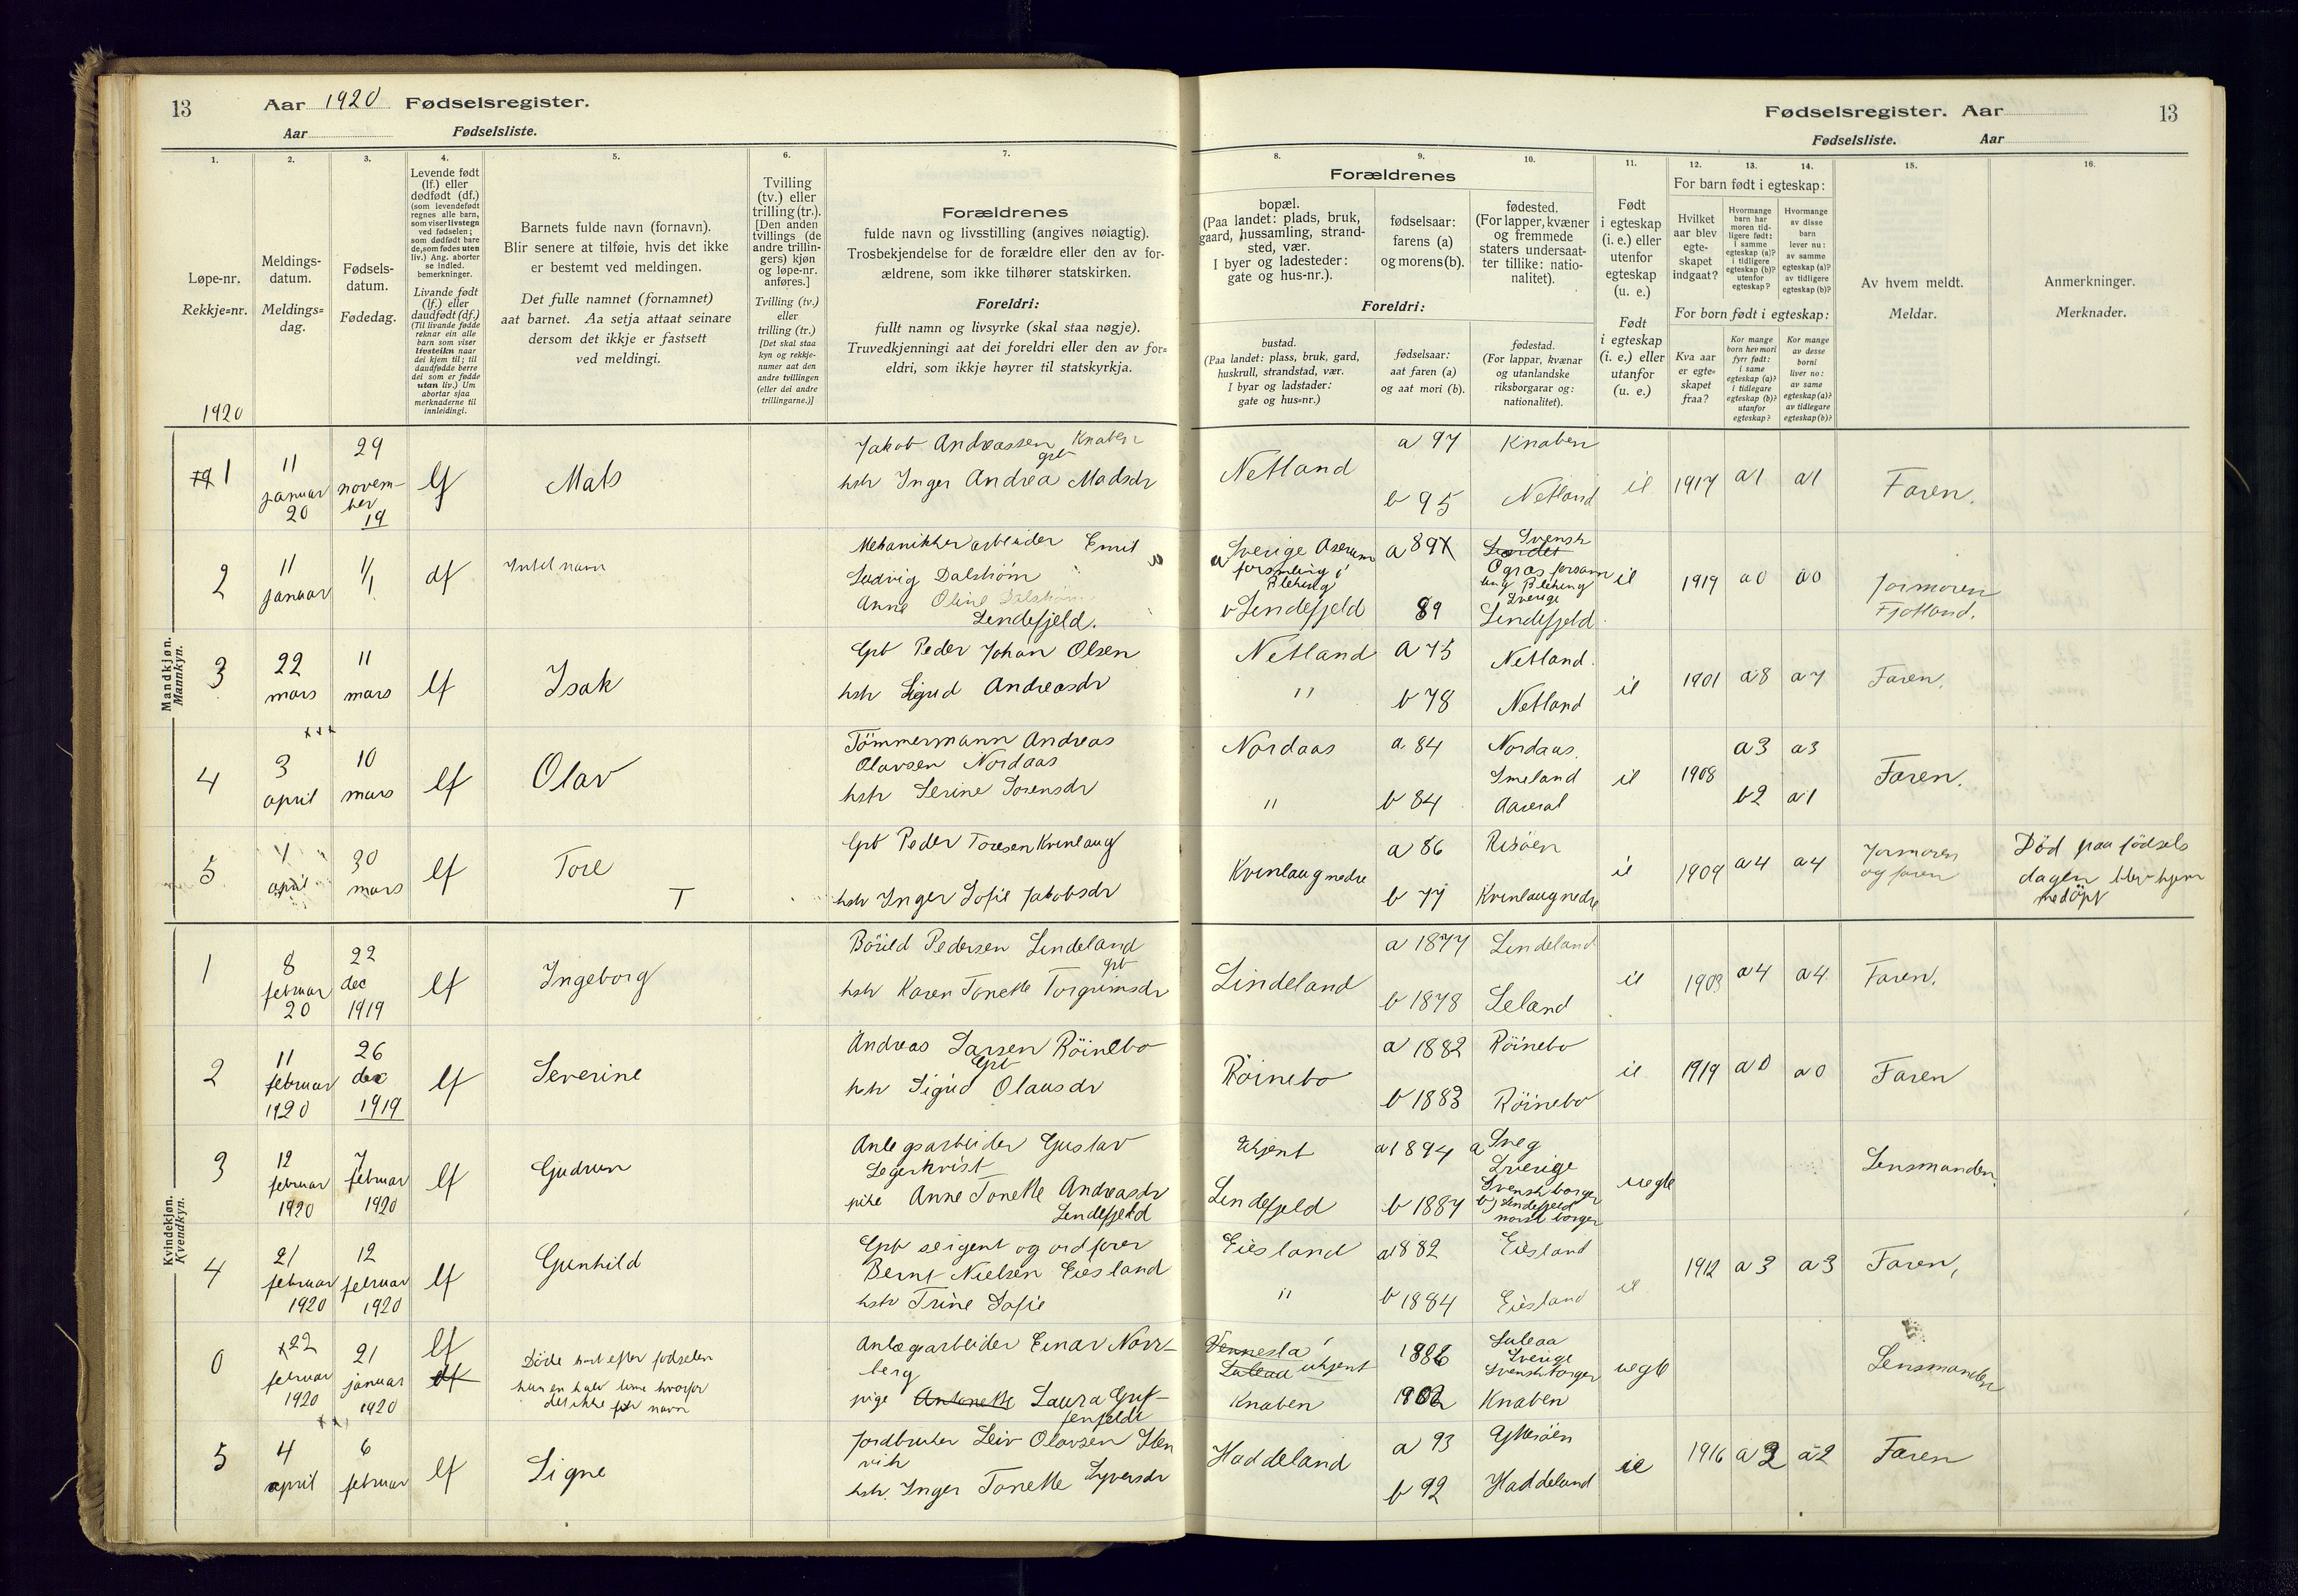 13
Aar 1920 Fødselsregister.
Aar Fødselsliste.
1.
Løpe-nr.
Rekkje=nr.
1920
2.
Meldings-
datum.
Meldings=
dag.
3.
Fødsels-
datum.
Fødedag.
4.
Levende født
(lf.) eller
dødfødt (df.)
(som levendefødt
regnes alle barn,
som viser livstegn
ved fødselen;
som dødfødt bare
de, som fødes uten
liv.) Ang. aborter
se indled.
bemerkninger.
Livande født
(lf.) eller
daudfødt (df.)
(Til livande fødde
reknar ein alle
barn som viser
livsteikn naar
dei kjem til; til
daudfødde berre
dei som er fødde
utan liv.) Um
abortar sjaa
merknaderne til
innleidingi.
5.
Barnets fulde navn (fornavn).
Blir senere at tilføie, hvis det ikke
er bestemt ved meldingen.
Det fulle namnet (fornamnet)
aat barnet. Aa setja attaat seinare
dersom det ikkje er fastsett
ved meldingi.
6.
Tvilling
(tv.) eller
trilling (tr.).
[Den anden
tvillings (de
andre trillin-
gers) kjøn
og løpe-nr.
anføres.]
Tvilling (tv.)
eller
trilling (tr.)
[Det skal staa
kyn og rekkje-
numer aat den
andre tvillingen
(eller dei andre
trillingarne.)]
7.
Forældrenes
fulde navn og livsstilling (angives nøiagtig).
Trosbekjendelse for de forældre eller den av for-
ældrene, som ikke tilhører statskirken.
Foreldri:
fullt namn og livsyrke (skal staa nøgje).
Truvedkjenningi aat dei foreldri eller den av for=
eldri, som ikkje høyrer til statskyrkja.
Fødselsregister. Aar
13
Fødselsliste. Aar
8.
Forældrenes
bopæl.
(Paa landet: plads, bruk,
gaard, hussamling, strand-
sted, vær.
I byer og ladesteder:
gate og hus-nr.).
Foreldri:
bustad.
(Paa landet: plass, bruk, gard,
huskrull, strandstad, vær.
I byar og ladstader:
gate og hus=nr.)
9.
fødselsaar:
farens (a)
og morens (b).
fødselsaar:
aat faren (a)
og aat mori (b).
10.
fødested.
(For lapper, kvæner
og fremmede
staters undersaat-
ter tillike: natio-
nalitet).
fødestad.
(For lappar, kvænar
og utanlandske
riksborgarar og:
nationalitet).
11.
Født
i egteskap
(i. e.) eller
utenfor
egteskap
(u. e.)
Født
i egteskap
(i. e.) eller
utanfor
(u. e.)
12.
13.
14.
For barn født i egteskap:
Hvilket
aar blev
egte-
skapet
indgaat?
Hvormange
barn har
moren tid-
ligere født:
i samme
egteskap (a)?
i tidligere
egteskap (b)?
utenfor
egteskap?
Hvormange
av disse
barn
lever nu:
av samme
egteskap (a)?
av tidligere
egteskap (b)?
For born født i egteskap:
Kva aar
er egte=
skapet
fraa?
Kor mange
born hev mori
fyrr født:
i same
egteskap (a)?
i tidlegare
egteskap (b)?
utanfor
egteskap?
Kor mange
av desse
borni
liver no:
av same
egteskap (a)?
av tidlegare
egteskap (b)?
15.
Av hvem meldt.
Meldar.
16.
Anmerkninger.
Merknader.
Mandkjøn.
Mannkyn.
1
11
januar
20
29
novem-
ber
19
lf
Mats
Jakob Andreassen Knaben
grb
hstr Inger Andrea Madsdr
Netland
a 97
b 95
Knaben
Netland
1917
a1
a1
Faren.
2
11
januar
1/1
df
Intet navn
Mekanikker arbeider Emil
Ludvig Dalstrøm
Anne Oline Dalstrøm
Lindefjeld.
a Sverige
b Lindefjeld
a 89
89
Svensk
Sverige
Lindefjeld
1919
a0
a0
Jormoren
Fjotland.
3
22
mars
11
mars
lf
Isak
Grb Peder Johan Olsen
hstr Sigrid Andreasdr
Netland
"
a 75
b 78
Netland.
Netland
1901
a8
a7
Faren.
4
3
april
10
mars
lf
Olav
Tömmermann Andreas
Olavsen Nordaas
hstr Serine Sorensdr
Nordaas
"
a. 84
b 84
Nordaas.
Smeland
Aaseral
1908
a3
a3
b2
a1
Faren.
5
april
30
mars
lf
Tore
T
Grb Peder Toresen Kvinlaug
hstr Inger Sofie Jakobsdr
Kvinlaug nedre
a 86
b 77
Risöen
Kvinlaug nedre
1909
a4
a4
Jormoren
og faren
Död paa födsels
dagen blev hjem
medöpt
Kvindekjøn.
Kvendkyn.
1
8
februar
20
22
dec
1919
lf
Ingeborg
Bövild Pedersen Lindeland
grb
hstr Karen Tonette Torgrimsdr
Lindeland
a 1877
b 1878
Lindeland
Leland
1903
a4
a4.
Faren.
2
11
februar
1920
26
dec
1919
lf
Severine
Andreas Larsen Röinebo
Grb
hstr Sigrid Olausdr
Röinebo
a 1882
b 1883
Röinebo
Röinebo
1919
a0
a0
Faren
3
12
februar
1920
7
februar
1920
lf
Gudrun
Anlegsarbeider Gustav
Segerkvist
pike Anne Tonette Andreasdr
Lindefjeld
Ukjent
Lindefjeld
a1894
b 1887
a Sveg
Sverige
Svensk borger
b) Lindefjeld
norsk borger
uegte
Lensmanden.
4
21
februar
1920
12
februar
1920
lf
Gunhild
Grb sergent og ordfører
Bernt Nielsen Eiesland
hstr Trine Sofie
Eiesland
"
a1882
b 1884
Eiesland
Eiesland
1912
a3
a3
Faren,
0
22
februar
1920
21
januar
1920
lf
df
Döde kort efter fødselen
kun en halv time hvorfor
det ikke fik navn
Anlægsarbeider Einar Norr-
berg
pige Antonette Laura Grif-
fenfeldt
Vennesla
Luleaa ukjent
Knaben
1886
1902
Luleaa
Sverige
Svensk borger
Knaben
uegte
Lensmanden
5
4
april
6
februar
lf
Signe
Jordbruker Leiv Olavsen Hen
vik
hstr. Inger Tonette Syversdr
Haddeland
a 93
b 92
Haddeland
ie
1916
a2
a2
Faren